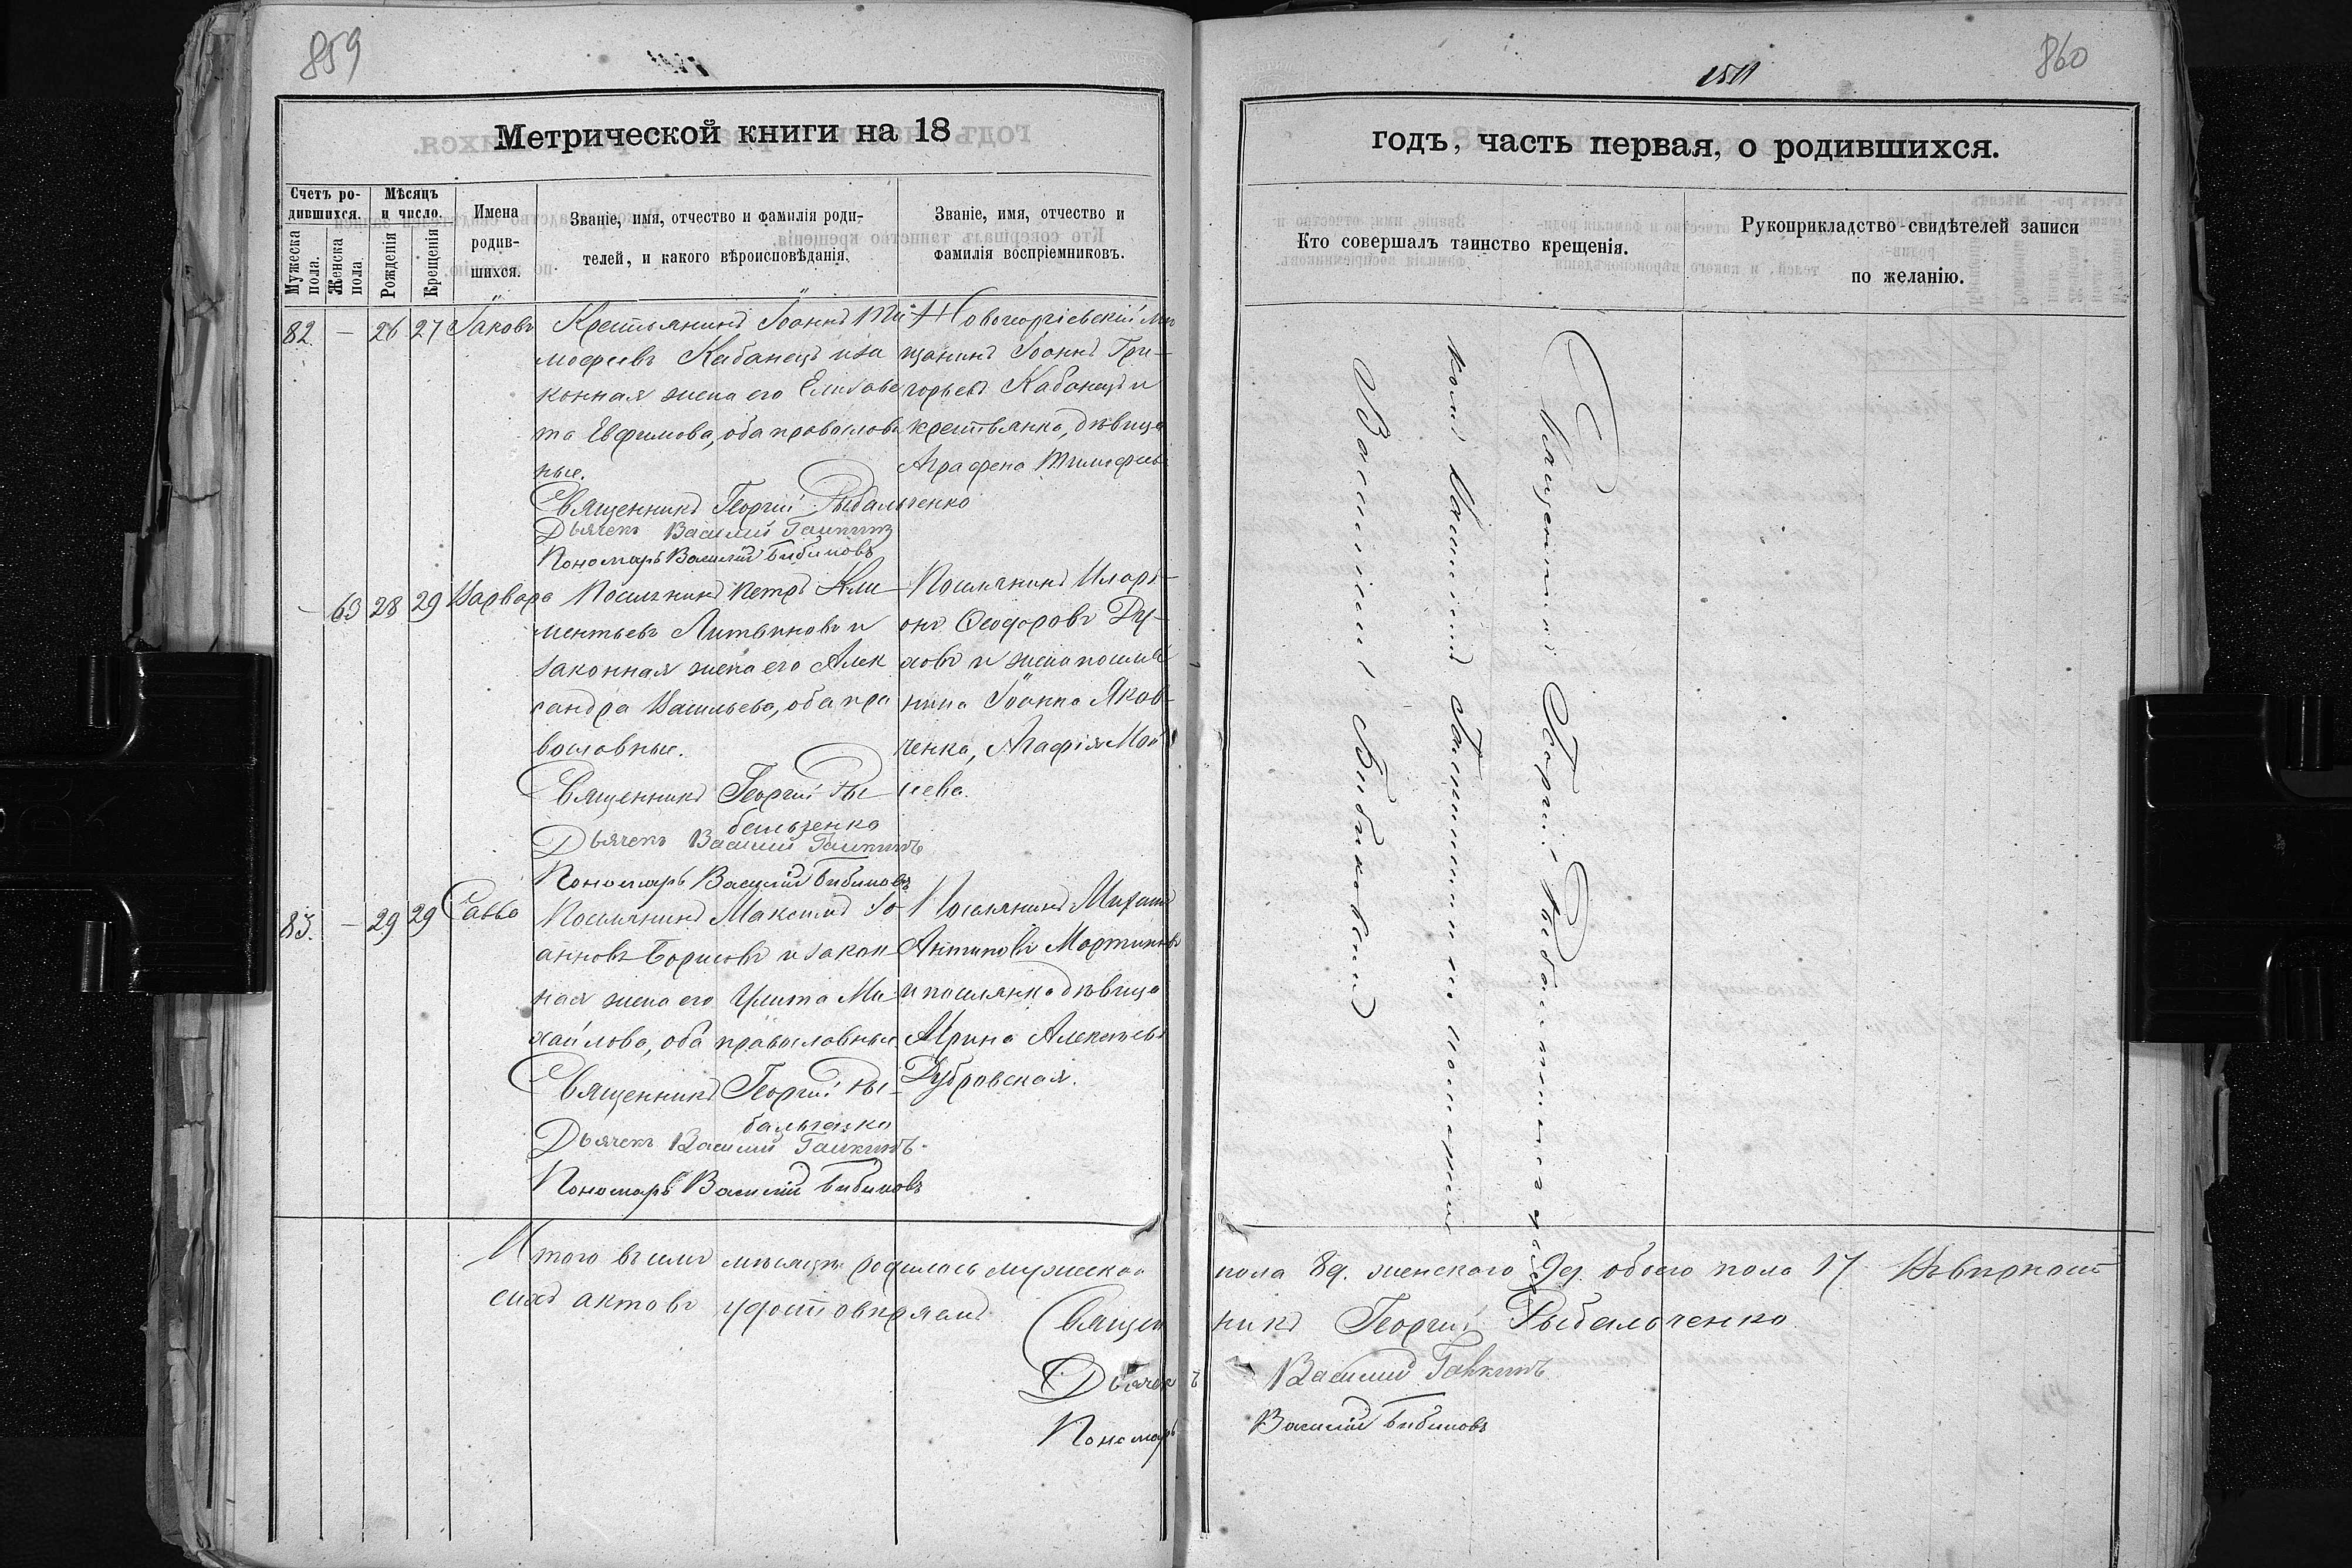 859
Метрической книги на 18
Счетъ ро-
дившихся.
Мужеска пола.
Женска пола.
Мѣсяцъ
и число.
Рожденія
Крещенія
Имена
родив-
шихся.
Званіе, имя, отчество и фамилія роди-
телей, и какого вѣроисповѣданія.
Званіе, имя, отчество и
фамилія воспріемниковъ.
82. — 26 27 Іаковъ
Крестьянинъ Іоаннъ Ти
мофеевъ Кабанецъ и за
конная жена его Елисаве
та Евфимова, оба православ
ные.
Священникъ Георгій Рыбальченко
Дьячекъ Василій Галкинъ
Пономарь Василій Бибиковъ
Новогеоргіевскій мѣ
щанинъ Іоаннъ Гри-
горьевъ Кабанецъ и
крестьянка, дѣвица
Аграфена Тимофеев
— 63 28 29 Варвара
Поселянинъ Петръ Кли
ментьевъ Литвиновъ и
законная жена его Алек
сандра Васильева, оба пра
вославные.
Священникъ Георгій Ры
бальченко
Дьячекъ Василій Галкинъ
Пономарь Василій Бибиковъ
Поселянинъ Иларі-
онъ Феодоровъ Ду-
ховъ и жена поселя
нина Іоанна Яков-
ченка, Агафія Мои
сеева.
83. — 29 29 Савва
Поселянинъ Максимъ Іо-
анновъ Борисовъ и закон
ная жена его Улита Ми
хайлова, оба православные
Священникъ Георгій Ры-
бальченко
Дьячекъ Василій Галкинъ
Пономарь Василій Бибиковъ
Поселянинъ Михаилъ
Антиповъ Мартиновъ
и поселянка дѣвица
Ирина Алексѣева
Дубровская.
Итого въ семъ мѣсяцѣ родилось мужеска
сихъ актовъ удостовѣряемъ
Священ
Дьячекъ
Пономарь
860
годъ, часть первая, о родившихся.
Кто совершалъ таинство крещенія.
Рукоприкладство свидѣтелей записи
по желанію.
Священникъ Георгій Рыбальченко съ дьяч
комъ Василіемъ Галкинымъ и пономаремъ
Василіемъ Бибиковымъ
пола 8д. женскаго 9д. обоего пола 17 Въ вѣрности
никъ Георгій Рыбальченко
Василій Галкинъ
Василій Бибиковъ